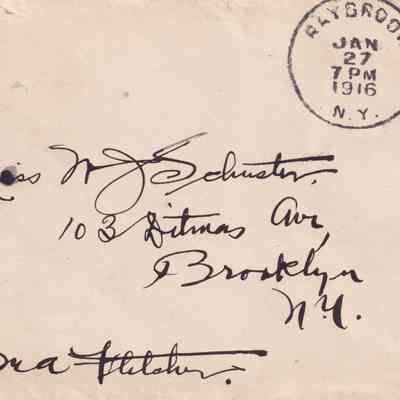 RLYBROOK
JAN
27
7 PM
1916
N.Y.
iss W J Schuster.
103 Ditmas Ave,
Brooklyn
N.Y.
ora Fletcher.